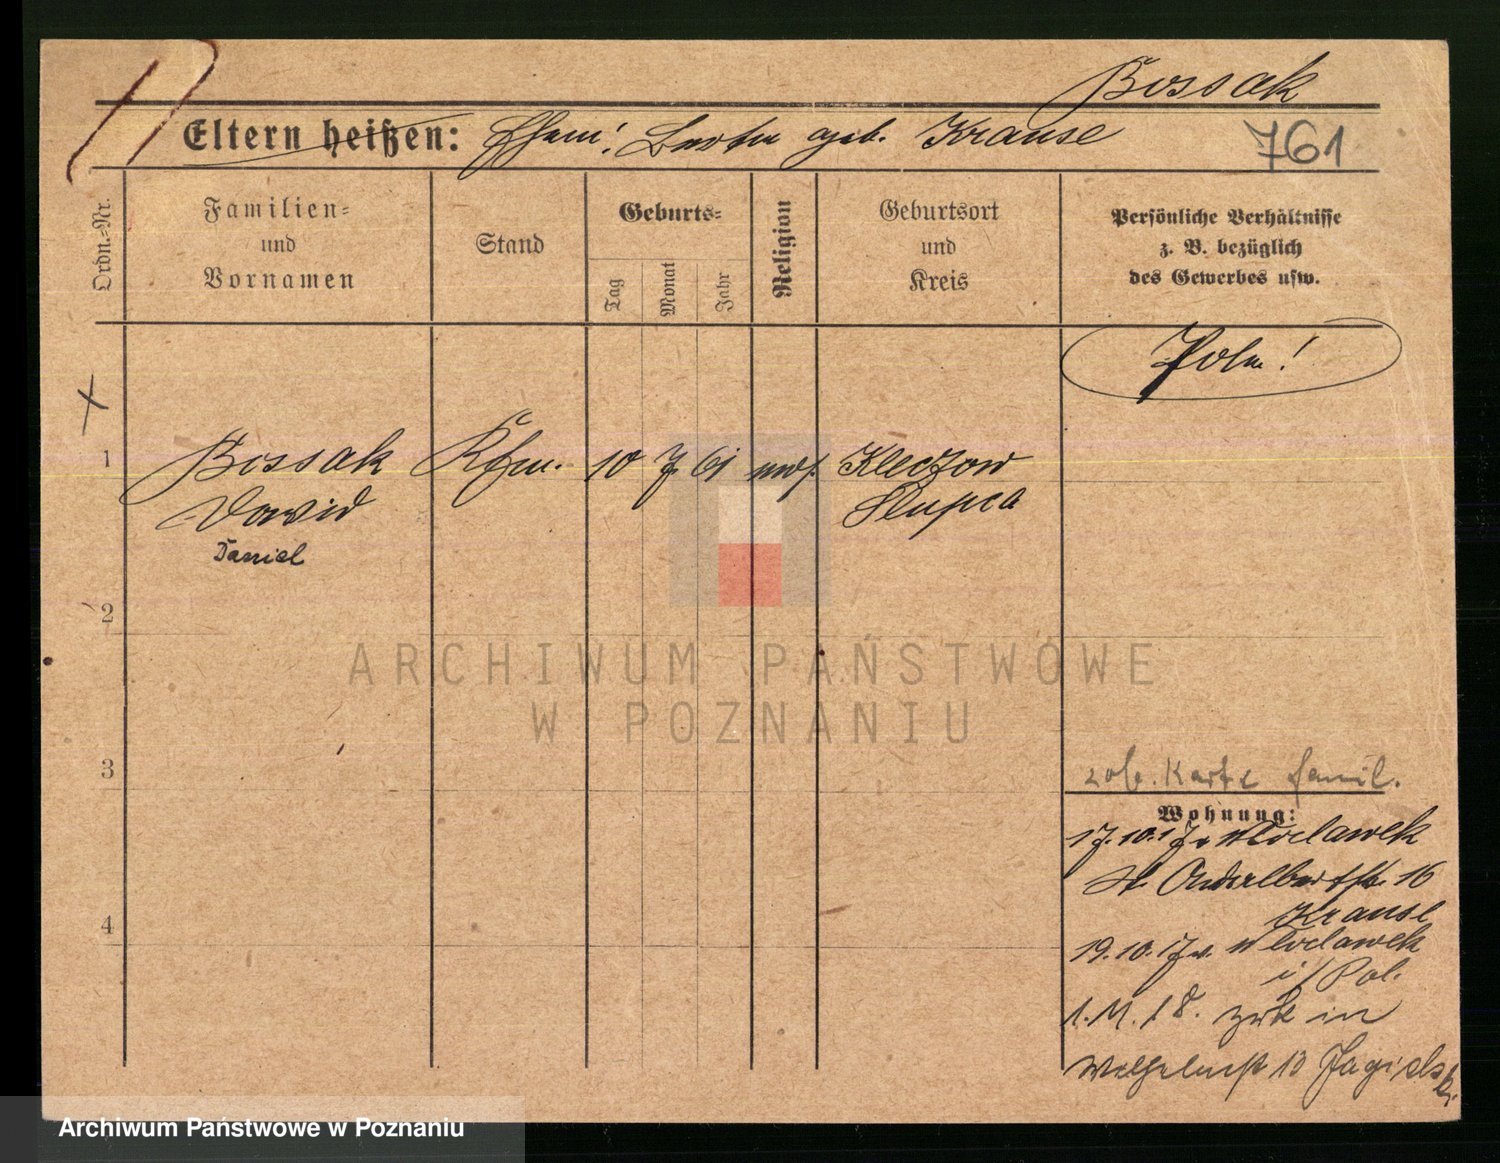 Bossak
Eltern heißen: Ehem: Berta geb. Krause
761
Ordn.-Nr.
Familien-
und
Vornamen
Stand
Geburts-
Tag
Monat
Jahr
Religion
Geburtsort
und
Kreis
Persönliche Verhältnisse
z. B. bezüglich
des Gewerbes usw.
Pole!
1
Bossak Kfm. 10 7 61 mos. Kleczow
Dawid Slupca
Daniel
2
3
4
zob. Karte famil.
Wohnung:
17.10.17 v. Wloclawek
16
Krause
19.10.17 v. Wloclawek
i/Pol.
1.11.18. zrk in
13
ARCHIWUM PAŃSTWOWE
W POZNANIU
Archiwum Państwowe w Poznaniu